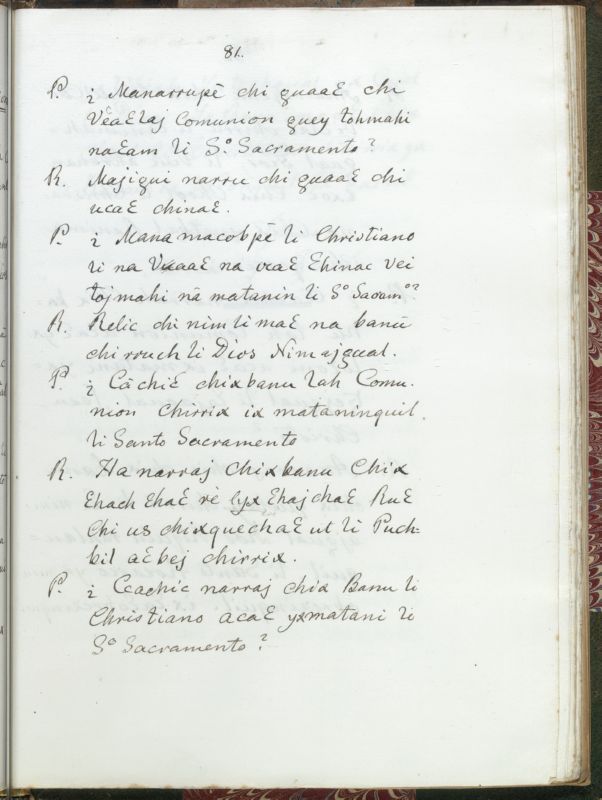 81.
P. ¿ Manarrupē chi guaaƐ chi
VéaƐlaj Comunion guey tohmahi
naƐam li S.º Sacramento?
R. Majigui narru chi guaaƐ chi
ucaƐ chinaƐ.
P. ¿ Mana macobpē li Christiano
li na VaaaƐ na ocaƐ Ɛhinac vei
tojmahi nā matanin li S.º Sacram.º?
R. Relic chi nim li maƐ na banū
chi rrouch li Dios Nimajgual.
P. ¿ CāchiƐ chixbanu lah Comu-
nion Chirrix ix mataninquil
li Santo Sacramento
R. Ha narraj chixbanu Chix
Ɛhach ƐhaƐ rè lyx ƐhajchaƐ RuƐ
Chi us chixquechaƐ ut li Puch-
bil aƐbej chirrix.
P. ¿ Ccachic narraj chix Banu li
Christiano acaƐ yxmatani li
S.º Sacramento?